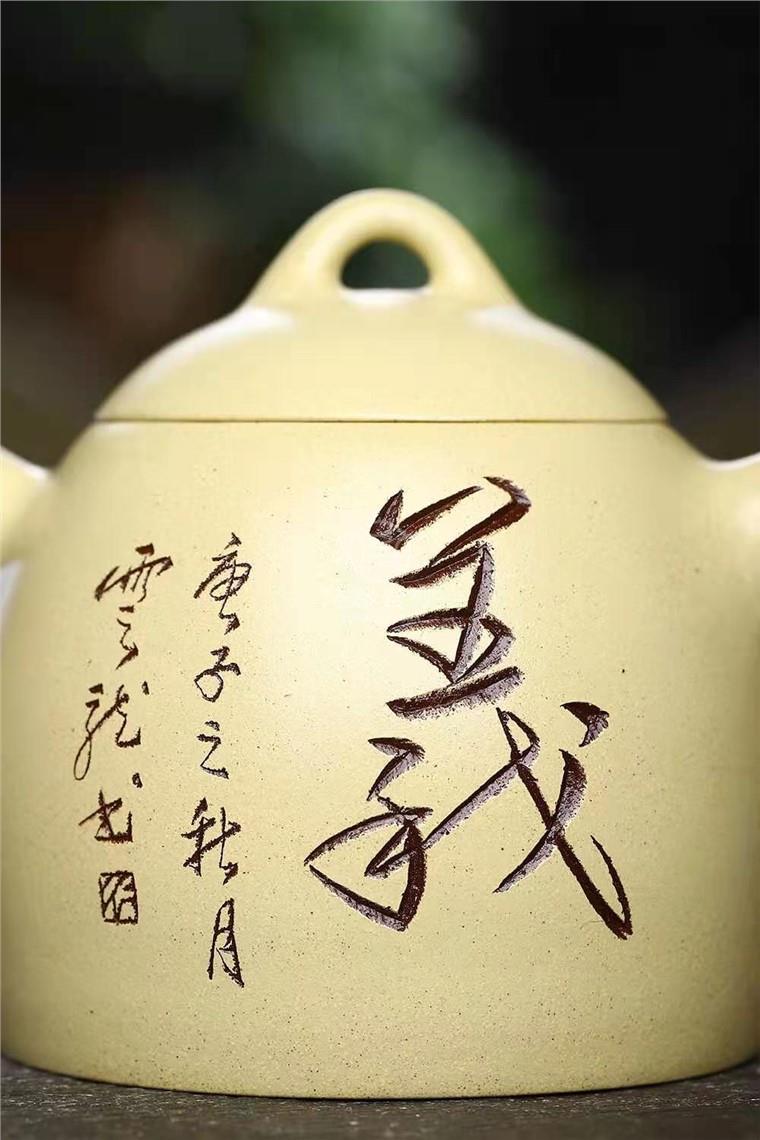 義
庚子之秋月
雲龍书